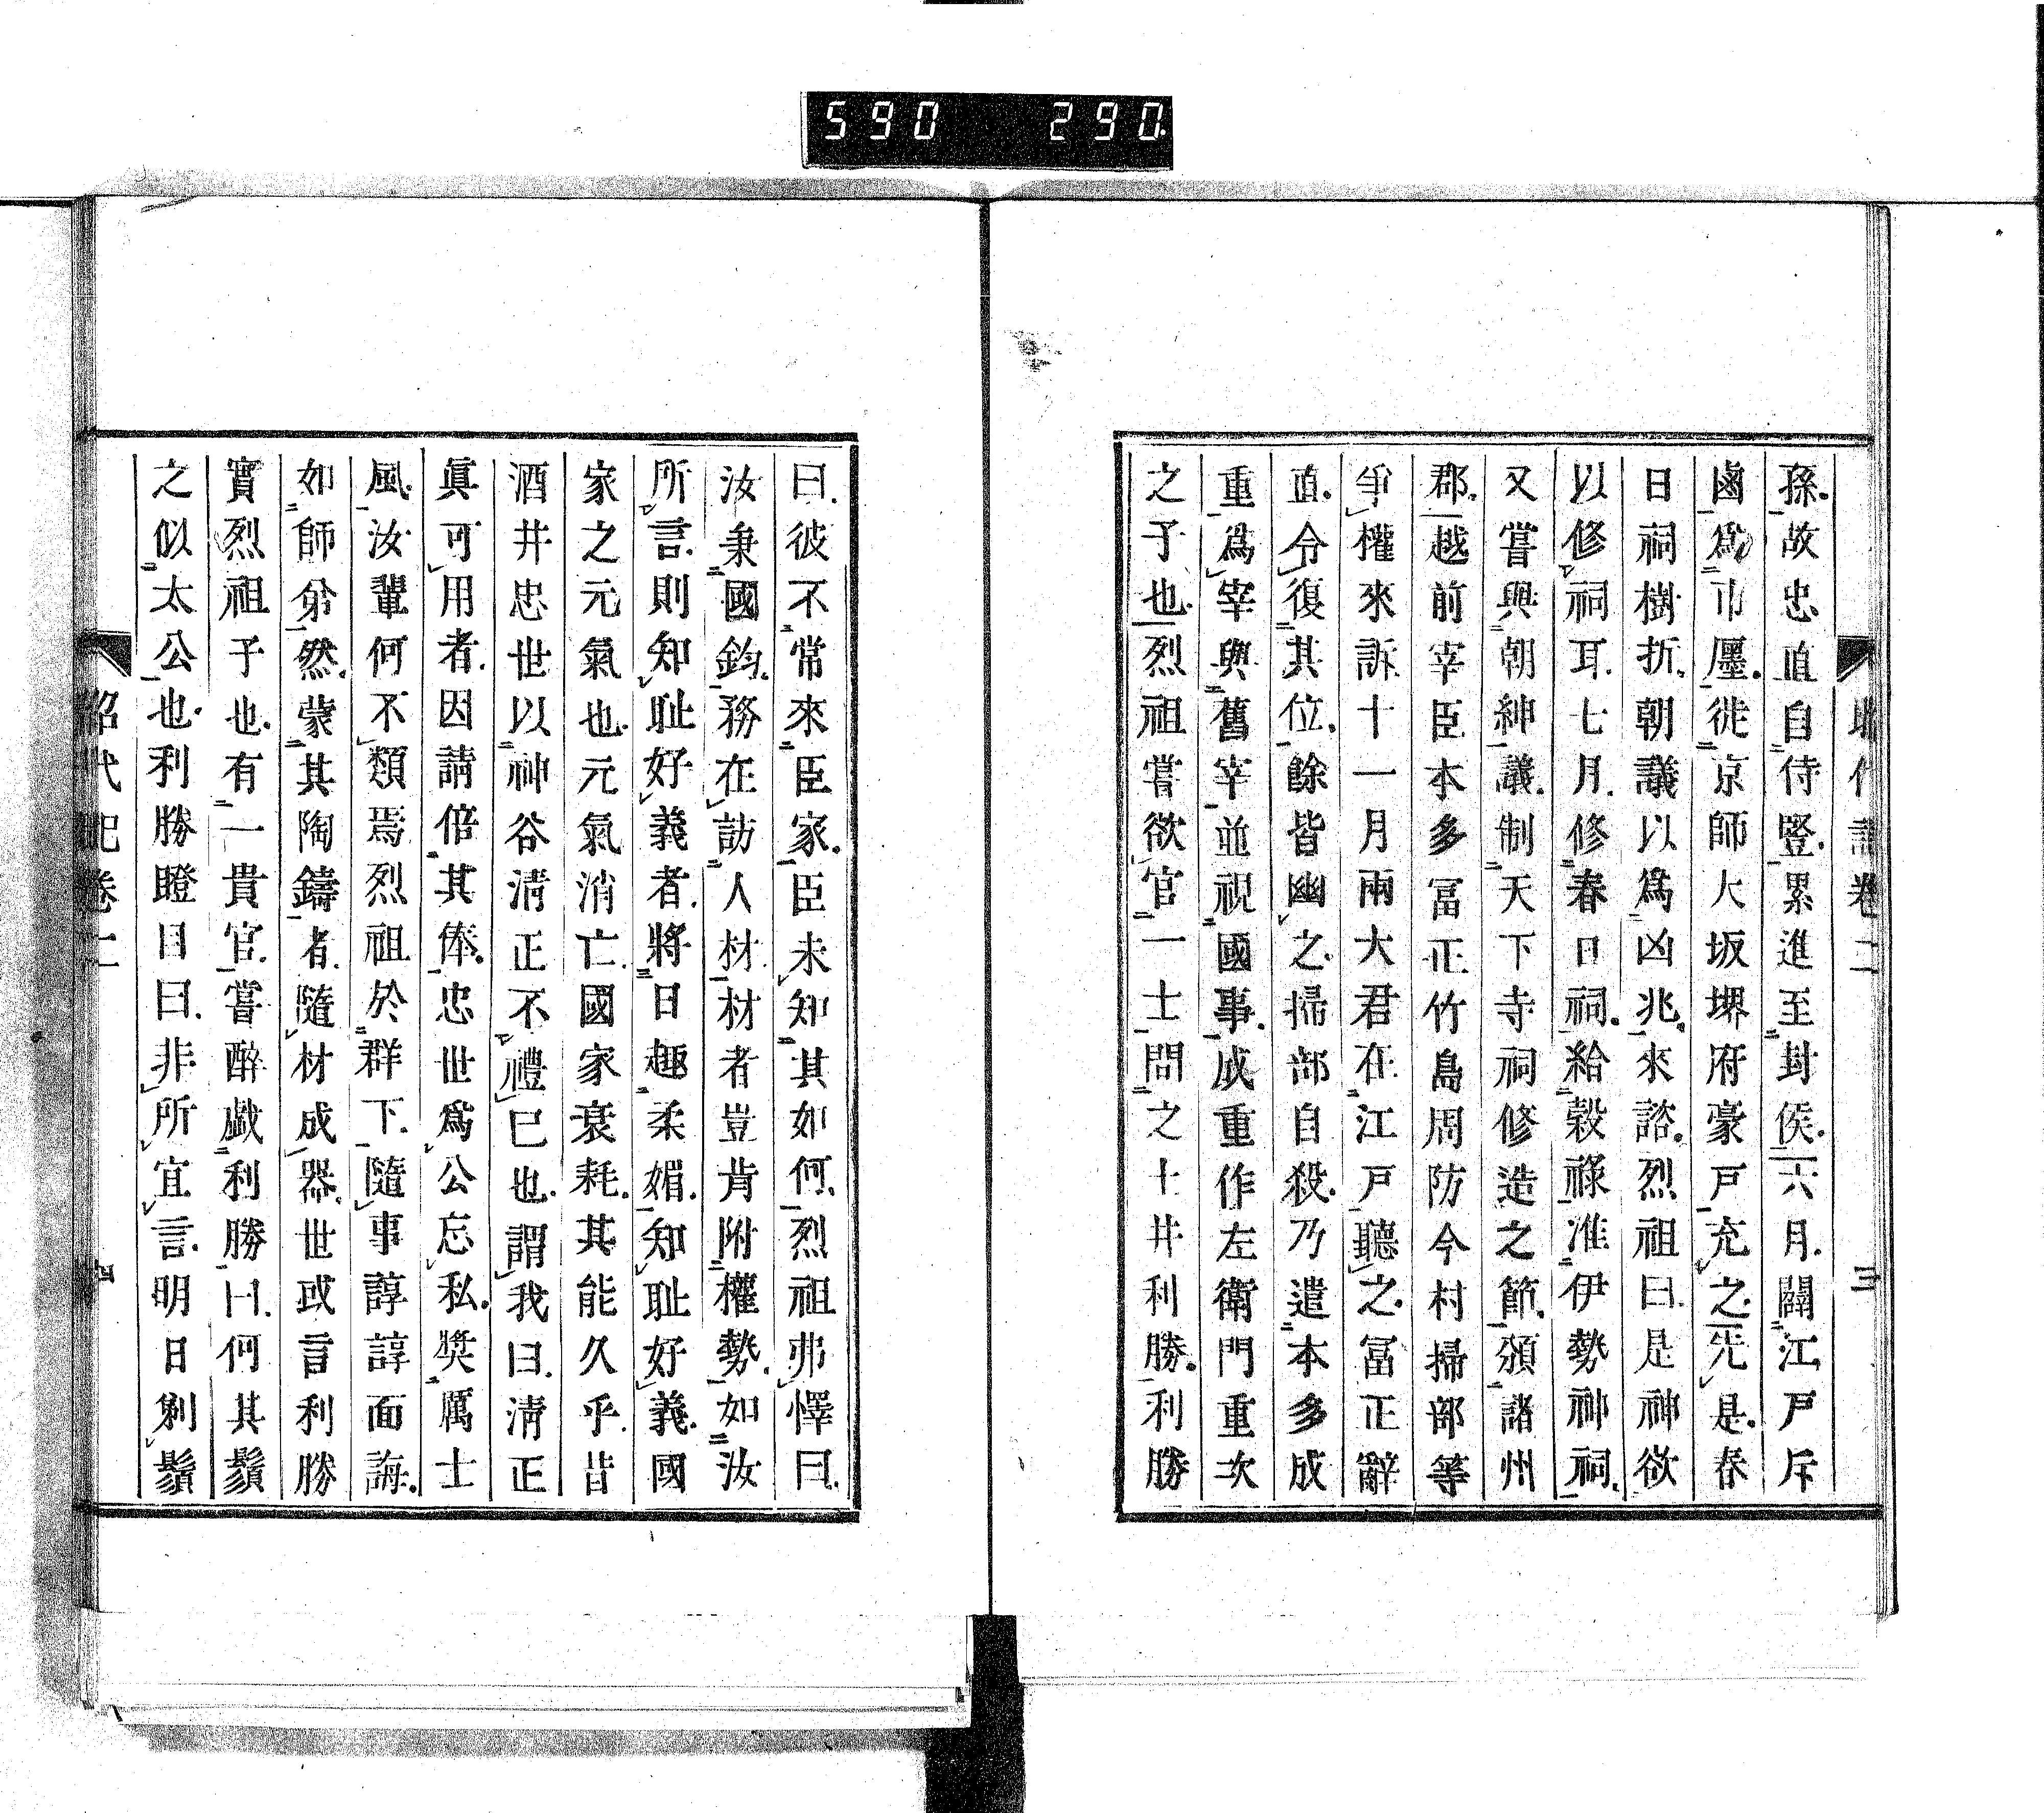 590 290
孫故忠直自侍豎累進至封侯六月闢江戸斥
鹵爲市廛徙京師大坂堺府豪戸充之先是春
日祠樹折朝議以爲凶兆來諮烈祖曰是神欲
以修祠耳七月修春日祠給穀祿准伊勢神祠
又嘗與朝紳議制天下寺祠修造之節頒諸州
郡越前宰臣本多冨正竹島周防今村掃部等
爭權來訴十一月兩大君在江戸聽之冨正辭
直令復其位餘皆幽之掃部自殺乃遣本多成
重爲宰與舊宰並視國事成重作左衛門重次
之子也烈祖嘗欲官一士問之土井利勝利勝
曰彼不常來臣家臣未知其如何烈祖弗懌曰
汝秉國鈞務在訪人材材者豈肯附權勢如汝
所言則知耻好義者將日趣柔媚知耻好義國
家之元氣也元氣消亡國家衰耗其能久乎昔
酒井忠世以神谷淸正不禮已也謂我曰淸正
眞可用者因請倍其俸忠世爲公忘私奬厲士
風汝輩何不類焉烈祖於群下隨事諄諄面誨
如師弟然蒙其陶鑄者隨材成器世或言利勝
實烈祖子也有一貴官嘗醉戯利勝曰何其鬚
之似太公也利勝瞪目曰非所宜言明日剃鬚
紹代紀卷二